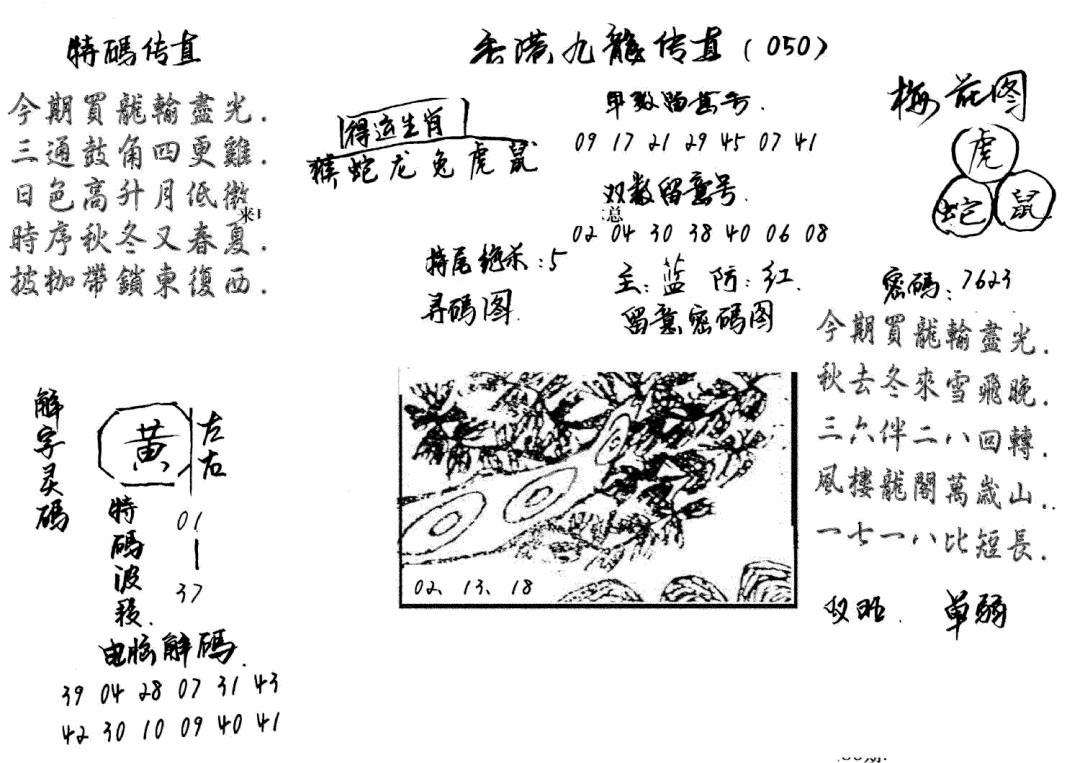 特碼传真
今期買龍輸盡光.
三通鼓角四更雞.
日色高升月低微
時序秋冬又春夏.
披枷帶鎖東復西.
香港九龍传真(050)
得运生肖
猴蛇龙兔虎鼠
特尾绝杀:5
寻码图
单数留意号.
09 17 21 29 45 07 41
双数留意号.
总
02 04 30 38 40 06 08
主:蓝 防:红.
留意密碼图
02. 13. 18
梅花图
虎
蛇 鼠
密碼:7623
今期買龍輸盡光.
秋去冬來雪飛晚.
三六伴二八回轉.
風樓龍閣萬歲山..
一七一八比短長.
单弱
解字灵碼
黄
左右
特碼波段.
01
|
37
电脑解碼.
39 04 28 07 31 43
42 30 10 09 40 41